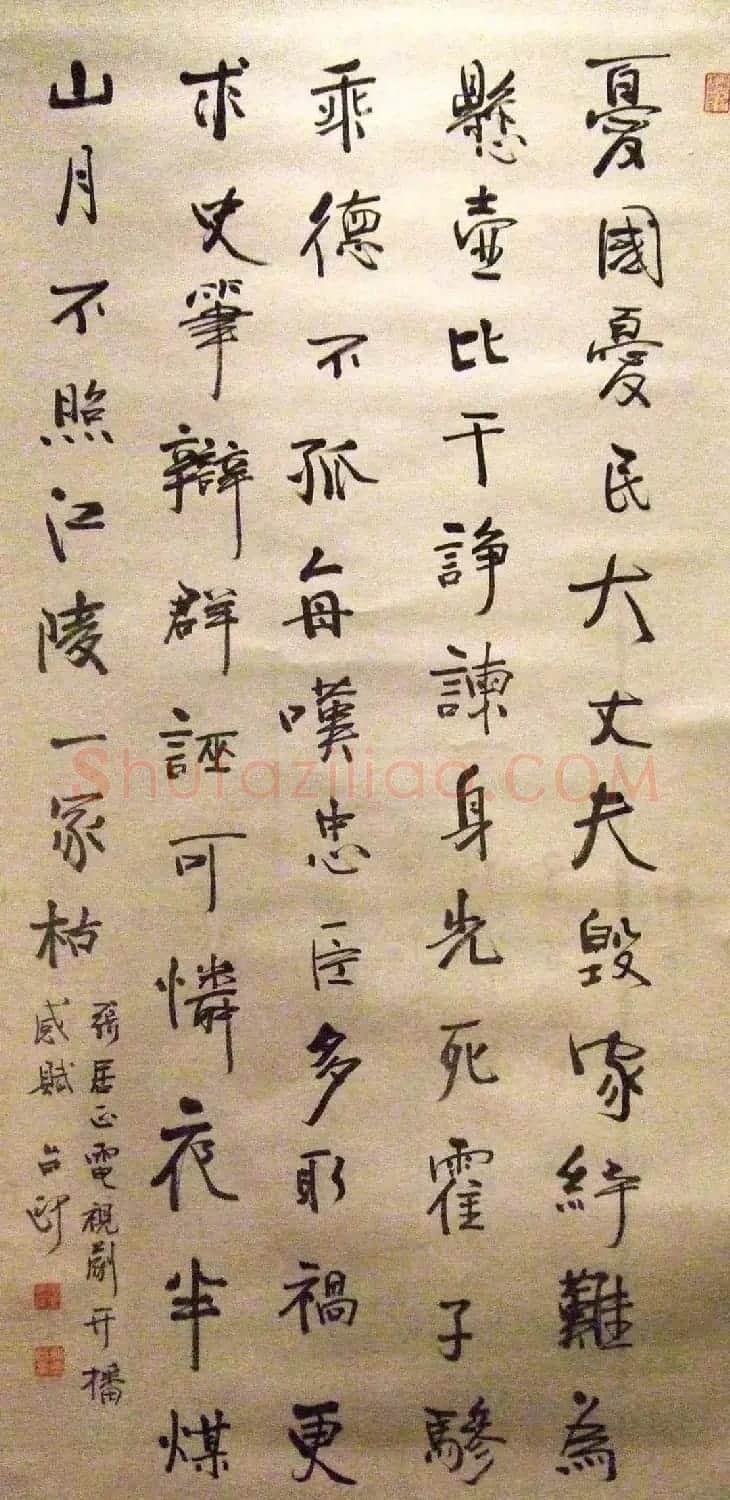 憂國憂民大丈夫毀家紓難為
懸壺比干諍諫身先死霍子驂
乘德不孤每嘆忠臣多取禍更
求史筆辯群誣可憐夜半煤
山月不照江陵一冢枯
張居正電視劇開播
感賦
Shufaziliao.COM